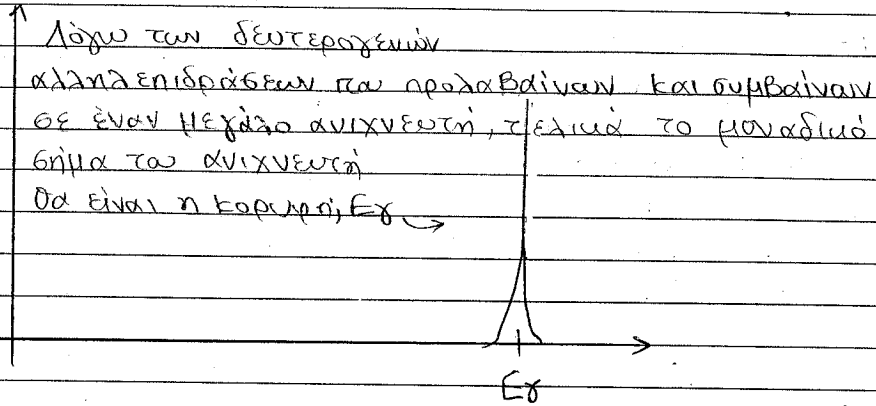 Λόγω των δευτερογενών
αλληλεπιδράσεων που προλαβαίνουν και συμβαίνουν
σε έναν μεγάλο ανιχνευτή, τελικά το μοναδικό
σήμα του ανιχνευτή
θα είναι η κορυφή, Εγ
Εγ